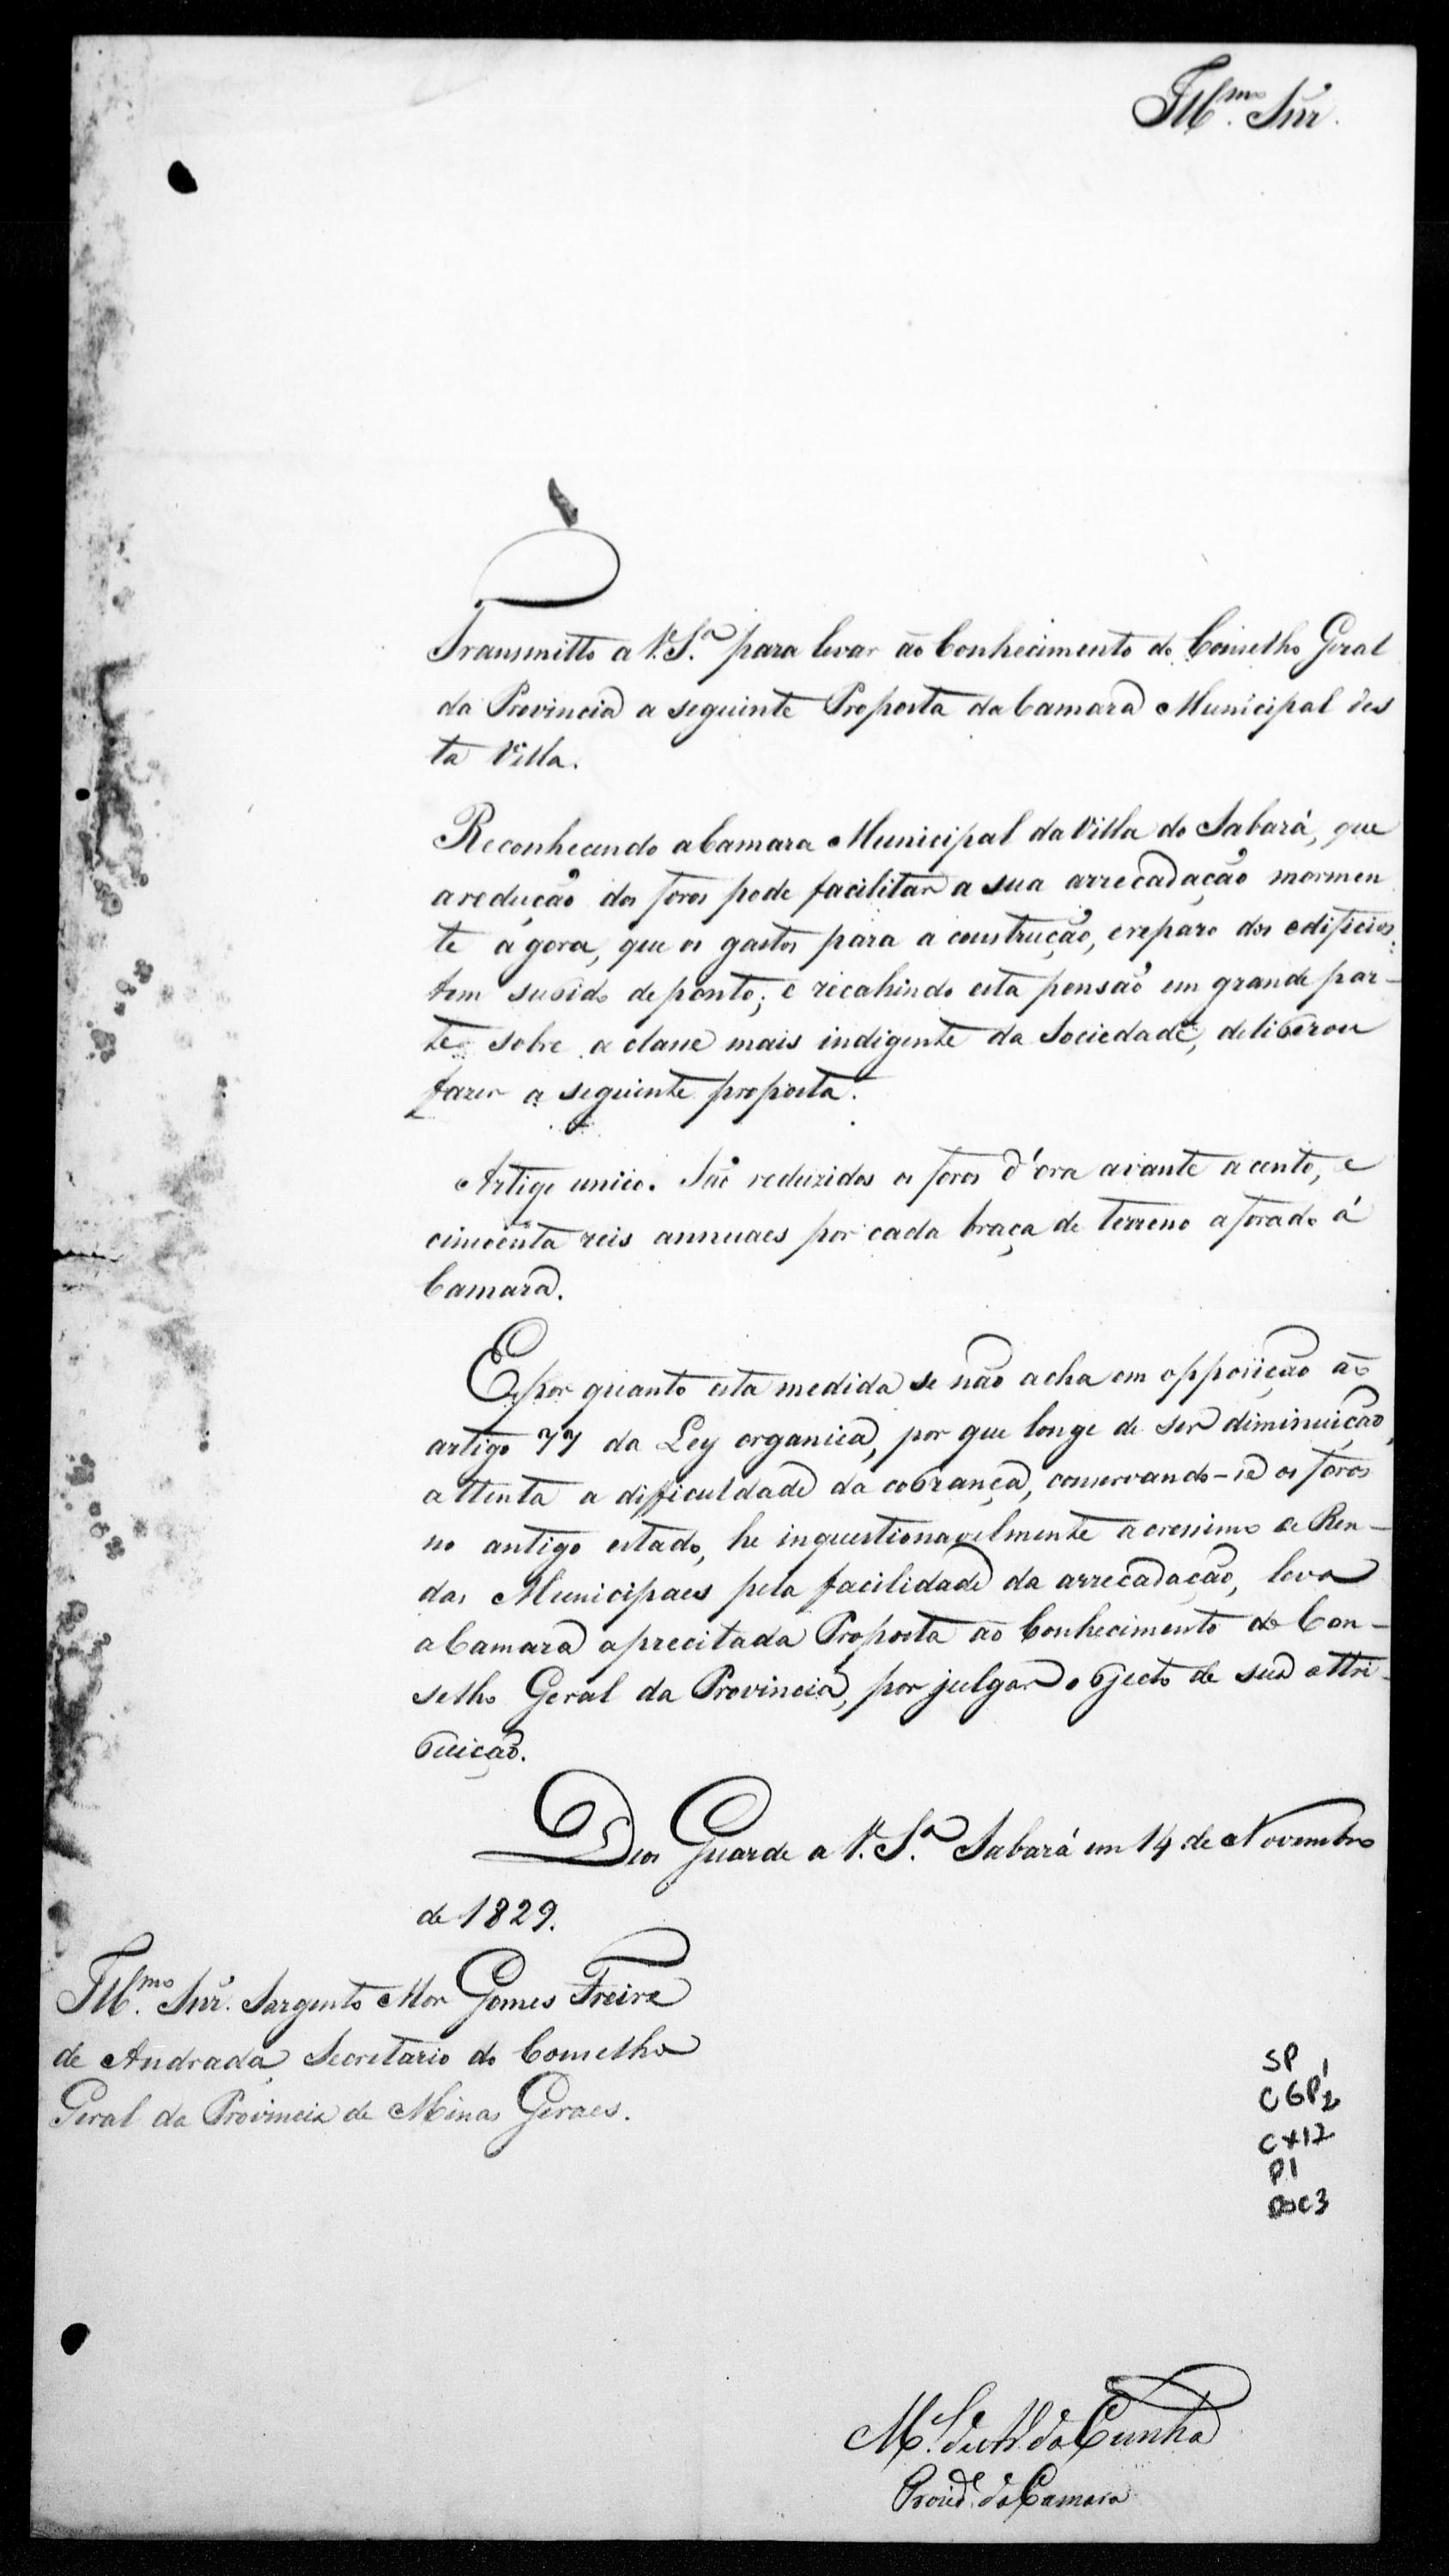 Illmo. Snr.
Transmitto a V. Sª. para levar ao Conhecimento do Conselho Geral
da Provincia a seguinte Proposta da Camara Municipal des
ta Villa.
Reconhecendo a Camara Municipal da Villa do Sabará, que
a redução dos foros pode facilitar a sua arrecadação mormen
te agora, que os gastos para a construção, e reparo dos edificios
tem subido de ponto; e recahindo esta pensão em grande par-
te sobre a classe mais indigente da Sociedade, deliberou
fazer a seguinte proposta.
Artigo unico. São reduzidos os foros d'ora avante a cento, e
cincoenta reis annuaes por cada braça de terreno aforado á
Camara.
E por quanto esta medida se não acha em opposição ao
artigo 77 da Ley organica, por que longe de ser diminuição,
attenta a dificuldade da cobrança, conservando-se os foros
no antigo estado, he inquestionavelmente acressimo de Ren-
das Municipaes pela facilidade da arrecadação, leva
a Camara a precitada Proposta ao Conhecimento do Con-
selho Geral da Provincia, por julgar objecto de sua attri-
buição.
Deos Guarde a V. Sª. Sabará em 14 de Novembro
de 1829.
Illmo. Snr. Sargento Mor Gomes Freire
de Andrada Secretario do Conselho
Geral da Provincia de Minas Geraes.
SP
CGP 1/2
CX12
P1
DOC3
da Cunha
da Camara